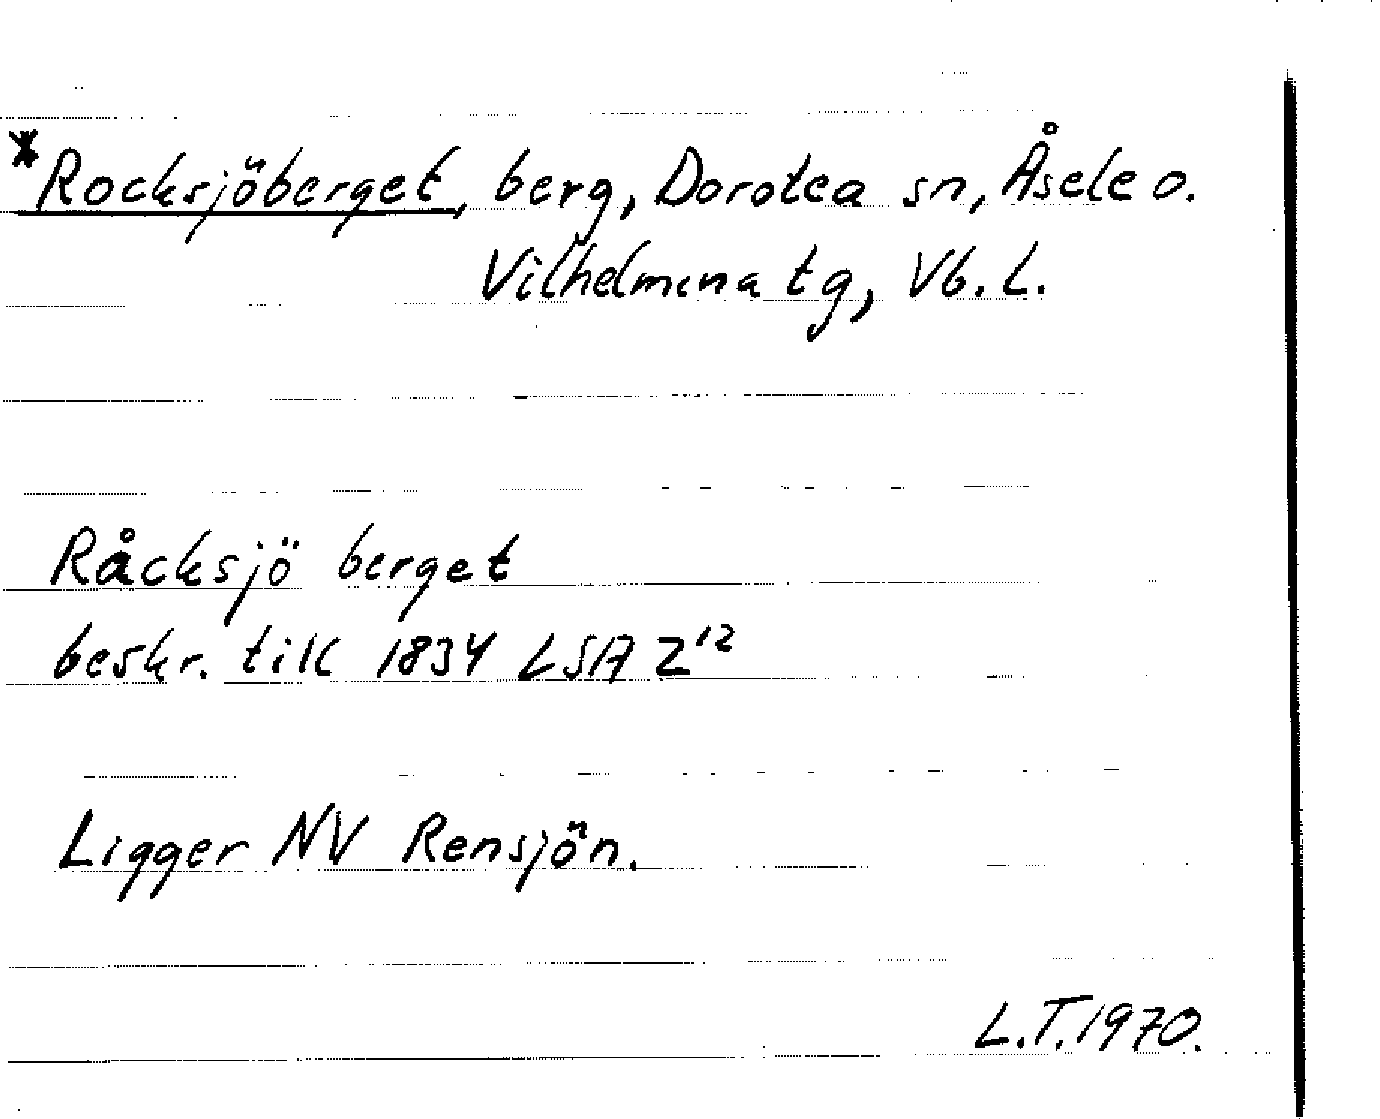 *Rocksjöberget, berg, Dorotea sn, Åsele o.
Vilhelmina tg, Vb. L.
Råcksjö berget
beskr. till 1834 LSA Z¹²
Ligger NV Rensjön.
L.T. 1970.